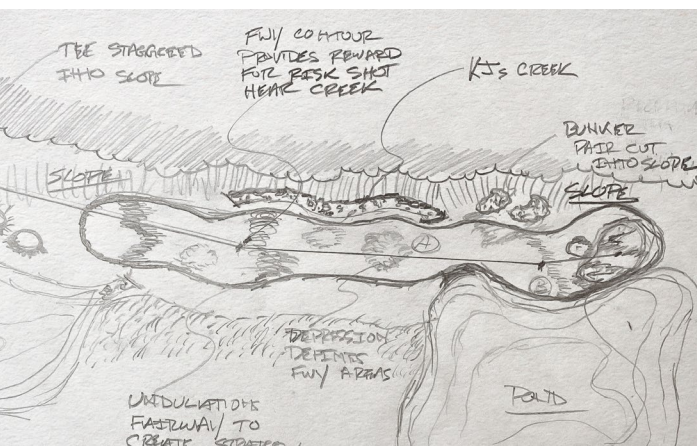 TEE STAGGERED
INTO SLOPE
FWY CONTOUR
PROVIDES REWARD
FOR RISK SHOT
NEAR CREEK
KJs CREEK
BUNKER
PAIR CUT
INTO SLOPE
SLOPE
SLOPE
A
B
DEPRESSION
DEFINES
FWY AREAS
POND
UNDULATIONS
FAIRWAY TO
CREATE